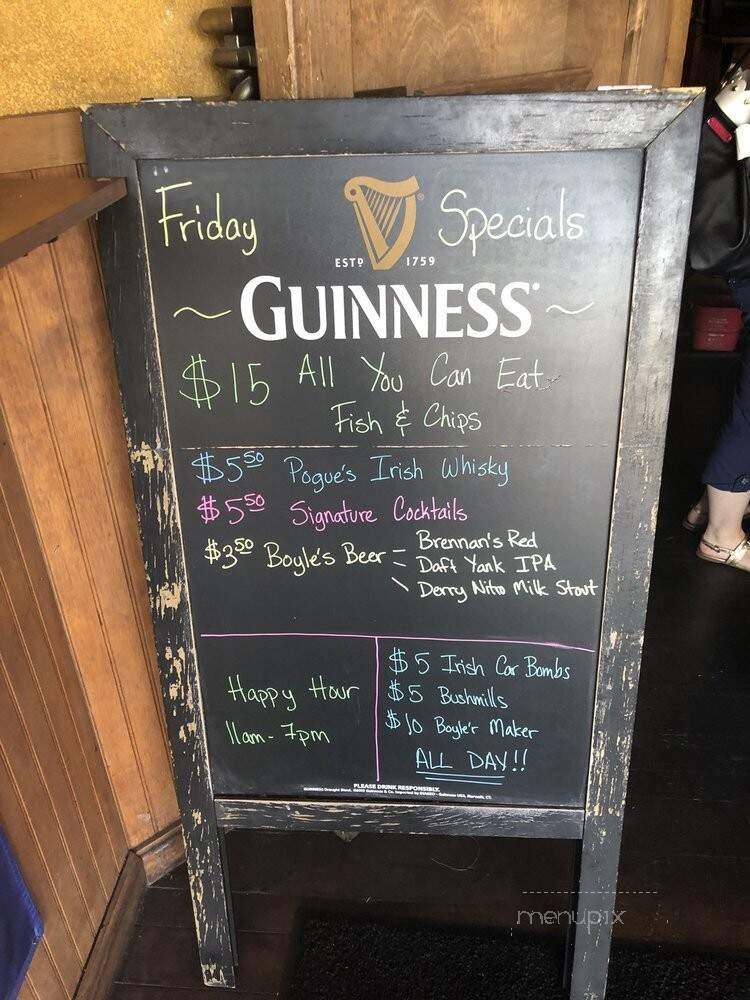 Friday Specials
ESTD 1759
~ GUINNESS ~
$15 All You Can Eat
Fish & Chips
$5.50 Pogue's Irish Whisky
$5.50 Signature Cocktails
$3.50 Boyle's Beer - Brennan's Red
- Daft Yank IPA
\ Derry Nitro Milk Stout
Happy Hour
11am - 7pm
$5 Irish Car Bombs
$5 Bushmills
$10 Boyle'r Maker
ALL DAY!!
PLEASE DRINK RESPONSIBLY.
menupix